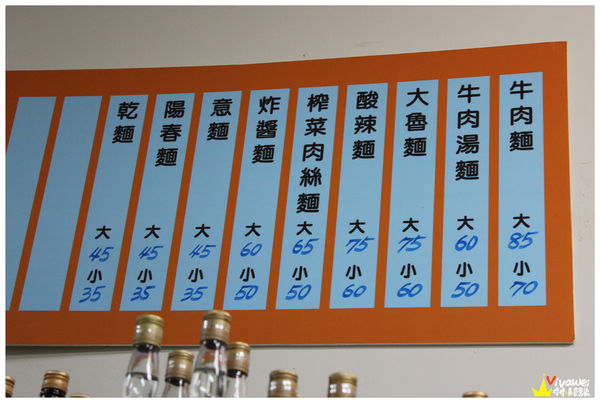 牛肉麵 大 85 小 70
牛肉湯麵 大 60 小 50
大魯麵 大 75 小 60
酸辣麵 大 75 小 60
榨菜肉絲麵 大 65 小 50
炸醬麵 大 60 小 50
意麵 大 45 小 35
陽春麵 大 45 小 35
乾麵 大 45 小 35
Vivawei